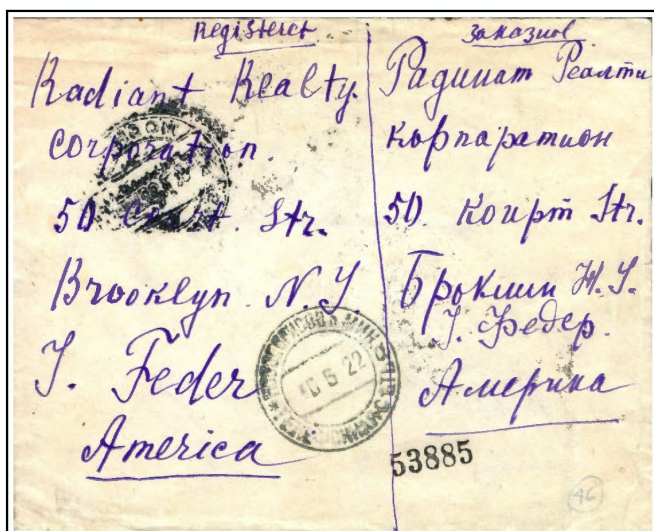 Registerect
Radiant Realty.
Corporation.
50 Court. Str.
Brooklyn. N.Y.
J. Feder
America
Заказное
Радинат Реалти
Корпаратион
50. Коирт Str.
Броклин Н.У.
J. Федер.
Америка
10 5 22
53885
46